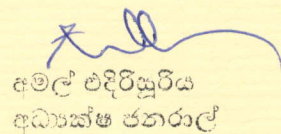 අමල් එදිරිසූරිය
අධ්‍යක්ෂ ජනරාල්